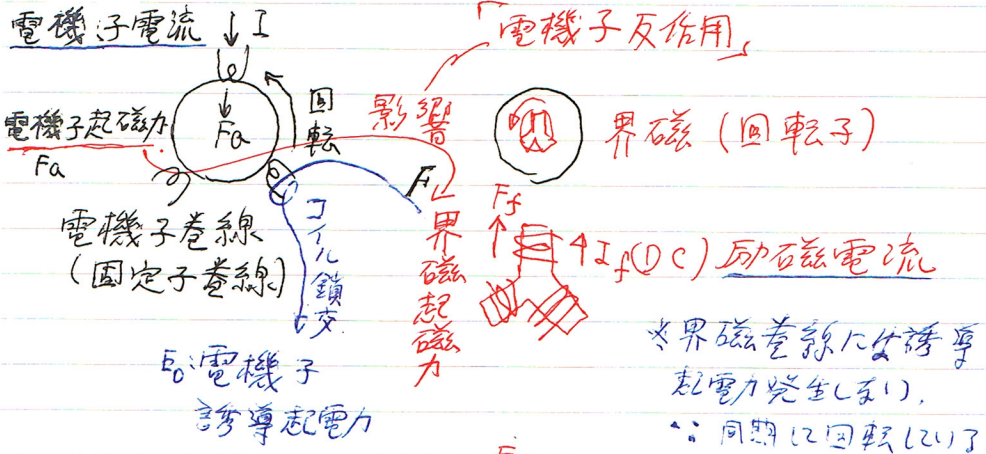 電機子電流 ↓I
「電機子反作用」
電機子起磁力
Fa
Fa
回転
影響
界磁(回転子)
電機子巻線
(固定子巻線)
コイル鎖交
F
界磁起磁力
Ff
If(DC) 励磁電流
E₀:電機子
誘導起電力
※界磁巻線には誘導
起電力発生しない。
∵同期して回転している